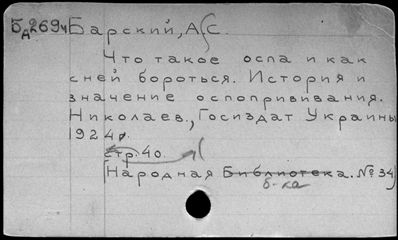 Бд269ч Барский, А С.
Что такое оспа и как
с ней бороться. История и
значение оспопрививания.
Николаев., Госиздат Украины
1924.
стр. 40.
(Народная Библиотека. № 34)
б-ка